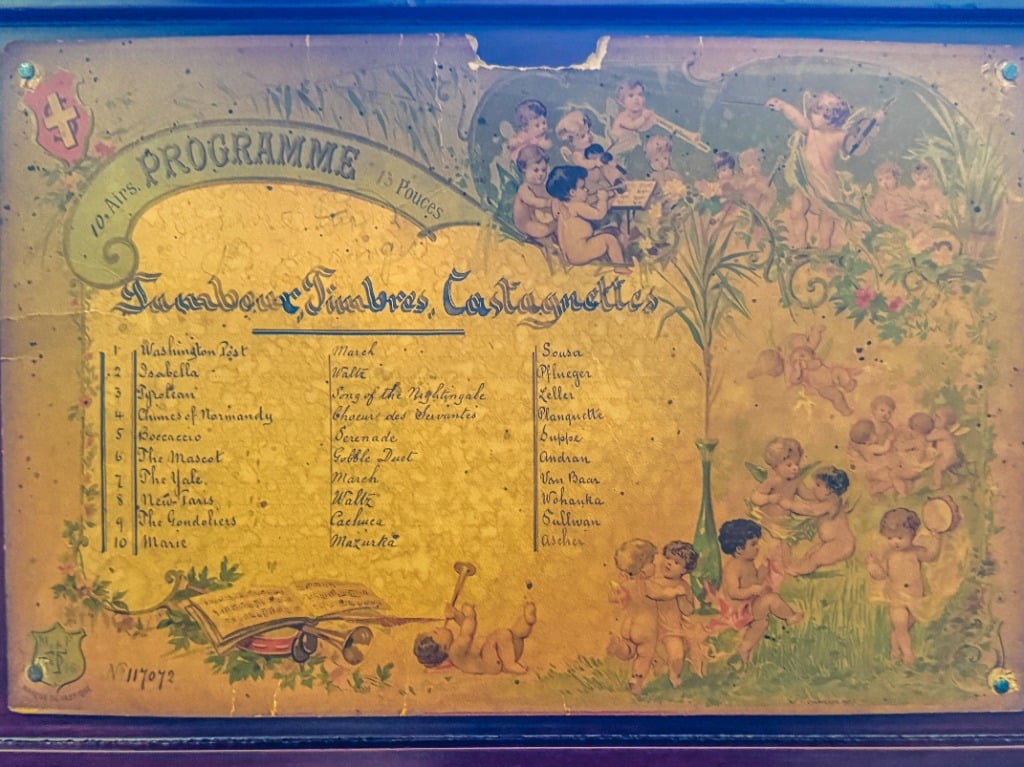 PROGRAMME
10. Airs. 13 Pouces
Tambour, Timbres, Castagnettes
1 Washington Post March Sousa
2 Isabella Waltz Pflueger
3 Tyrolean Song of the Nightingale Zeller
4 Chimes of Normandy Choeur des Servantes Planquette
5 Boccaccio Serenade Suppe
6 The Mascot Gobble Duet Andran
7 The Yale. March Van Baar
8 New-Paris Waltz Wohanka
9 The Gondoliers Cachuca Sullivan
10 Marie Mazurka Ascher
No 117072